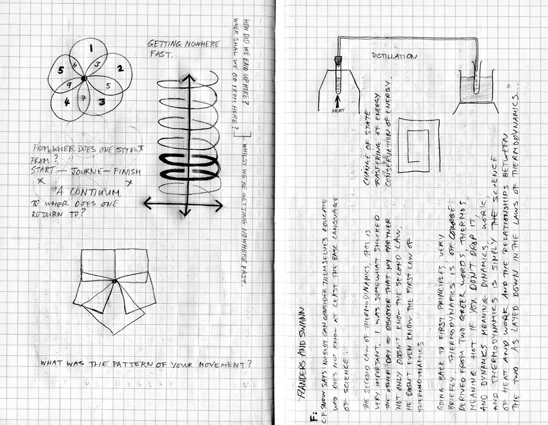 1
2
3
4
5
5
5
9
7
GETTING NOWHERE
FAST...
HOW DID WE END UP HERE?
WHERE SHALL WE GO FROM HERE?
WHILST WE'RE GETTING NOWHERE FAST.
FROM WHER DOES ONE START
FROM?
START — JOURNE — FINISH
x x
A CONTIUUM
TO WHER DOES ONE
RETURN TO?
WHAT WAS THE PATTERN OF YOUR MOVEMENT?
DISTILLATION
HEAT
CHANGE OF STATE
TRASFERING OF ENERGY
CONSERVATION OF ENERGY.
F:
FLANDERS AND SWANN
C.P. SNOW SAYS NOONE CAN CONSIDER THEMSELVES EDUCATE
WHO DOES NOT KNOW AT LEAST THE BASIC LANGUAGE
OF SCIENCE.
THE SECOND LAW OF THERMODYNAMICS, THIS IS
VERY IMPORTANT. I WAS SOMEWHAT SHOCKED
THE OTHER DAY TO DISCOVER THAT MY PARTNER
NOT ONLY DOESN'T KNOW THE SECOND LAW,
HE DOESN'T EVEN KNOW THE FIRST LAW OF
THERMODYNAMICS
GOING BACK TO FIRST PRINCIPLES, VERY
BRIEFLY, THERMODYNAMICS IS OF COURSE
DERIVED FROM TWO GREEK WORDS, THERMOS,
MEANING HOT IF YOU DON'T DROP IT,
AND DYNAMICS MEANING DYNAMICS, WORK,
AND THERMODYNAMICS IS SIMPLY THE SCIENCE
OF HEAT AND WORK AND THE RELATIONSHIPS BETWEEN
THE TWO, AS LAYED DOWN IN THE LAWS OF THERMODYNAMICS."